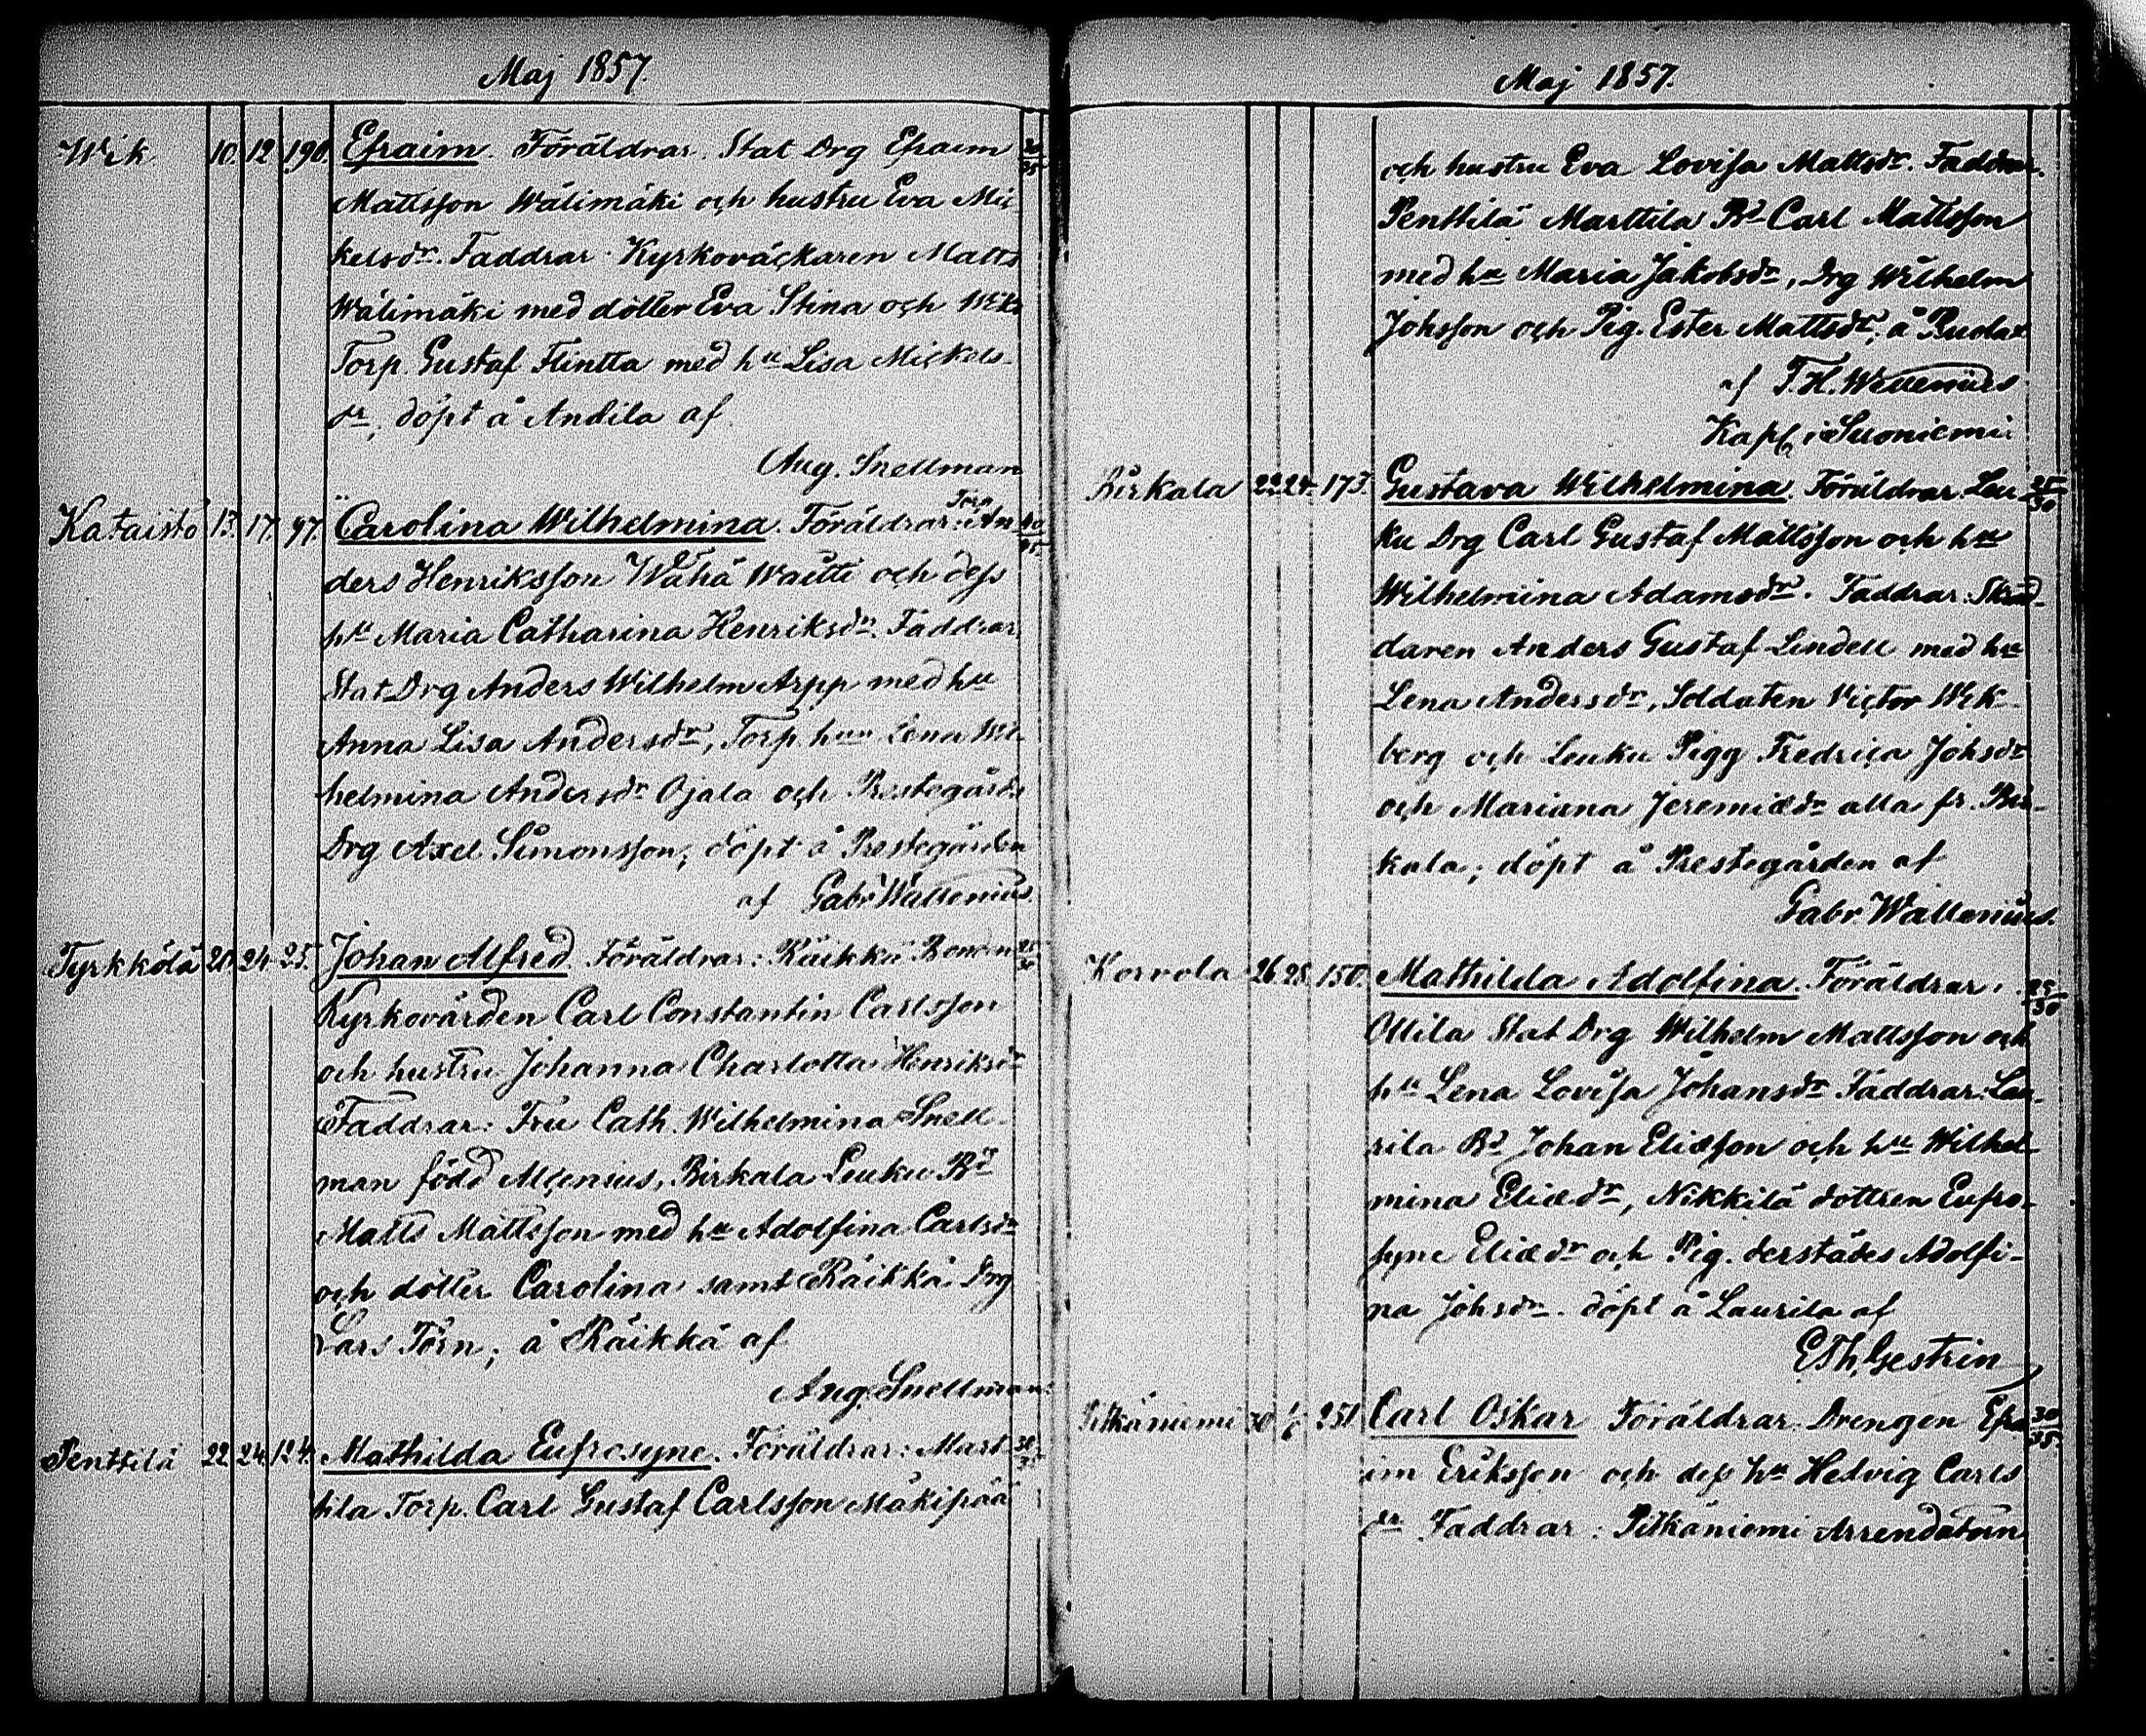 Maj 1857.
Wik 10. 12 190. Efraim. Föräldrar. Stat Drg Efraim
Mattsson Wälimäki och hustru Eva Mic
kelsdr. Faddrar Kyrkoväckaren Matts
Wälimäki med dotter Eva Stina och Wiks
Torp. Gustaf Flintta med hu Lisa Mickels-
dr, döpt å Andila af
Aug. Snellman
Kataisto 13. 17. 97. Carolina Wilhelmina. Föräldrar: Torp An 40/45
ders Henriksson Wähä Waitti och dess
hu Maria Catharina Henriksdr. Faddrar
Stat Drg Anders Wilhelm Arpp med hu
Anna Lisa Andersdr, Torp. hun Lena Wil
helmina Andersdr Ojala och Prestegårds
Drg Axel Simonsson, döpt å Prestegården
af Gabr Wallenius.
Tyrkkölä 20. 24. 25. Johan Alfred Föräldrar: Räikkä Bonden 25/30
Kyrkovärden Carl Constantin Carlsson
och hustru Johanna Charlotta Henriksdr
Faddrar: Fru Cath. Wilhelmina Snell-
man född Alcenius, Birkala Leuku Bd
Matts Mattsson med hu Adolfina Carlsdr
och dotter Carolina samt Räikkä Drg
Lars Törn; å Räikkä af
Aug. Snellman.
Penttilä 22. 24. 124. Mathilda Eufrosyne. Föräldrar: Mart
tila Torp. Carl Gustaf Carlsson Mäkipää
Maj 1857.
och hustru Eva Lovisa Mattsdr. Faddrar.
Penttilä Marttila Bd Carl Mattsson
med hu Maria Jakobsdr, Drg Wilhelm
Johsson och Pig. Ester Mattsdr, å
af F. H. Wallenius
Kapl. i Suoniemi
Birkala 22. 24. 173. Gustava Wilhelmina Föräldrar Leu 25/30
ku Drg Carl Gustaf Mattsson och hu
Wilhelmina Adamsdr. Faddrar: Skräd-
daren Anders Gustaf Lindell med hu
Lena Andersdr, Soldaten Victor Wik-
berg och Leuku Pigg Fredrica Johsdr
och Mariana Jeremiædr alla fr. Bir-
kala; döpt å Prestegården af
Gabr Wallenius.
Korvola 26. 28. 150. Mathilda Adolfina. Föräldrar: 25/30
Ollila Stat Drg Wilhelm Mattsson och
hu Lena Lovisa Johansdr Faddrar: Lau-
rila Bd Johan Eliæsson och hu Wilhel
mina Eliædr, Nikkilä dottren Eufro-
syne Eliædr och Pig. derstädes Adolfi-
na Johsdr. döpt å Laurila af
E Th. Gestrin
Pitkäniemi 30 251 Carl Oskar Föräldrar Drengen Efra 30/35
im Eriksson och dess hu Hedvig Carls
dr Faddrar: Pitkäniemi Arrendatorn